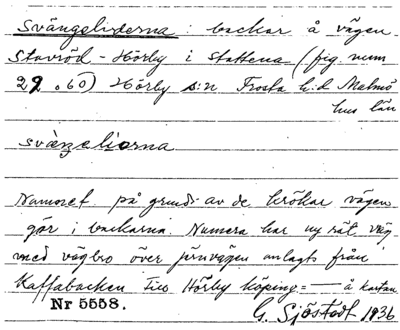 Svängeliderna : backar å vägen
Stavröd - Hörby i Slättena (fig. num
29.60) Hörby s:n Frosta h:d Malmö
hus län
svàngeliorna
Namnet på grund av de krökar vägen
gör i backarna. Numera har ny rät väg
med vägbro över järnvägen anlagts från
Kaffabacken till Hörby köping = — å kartan
Nr 5558.
G. Sjöstedt 1936